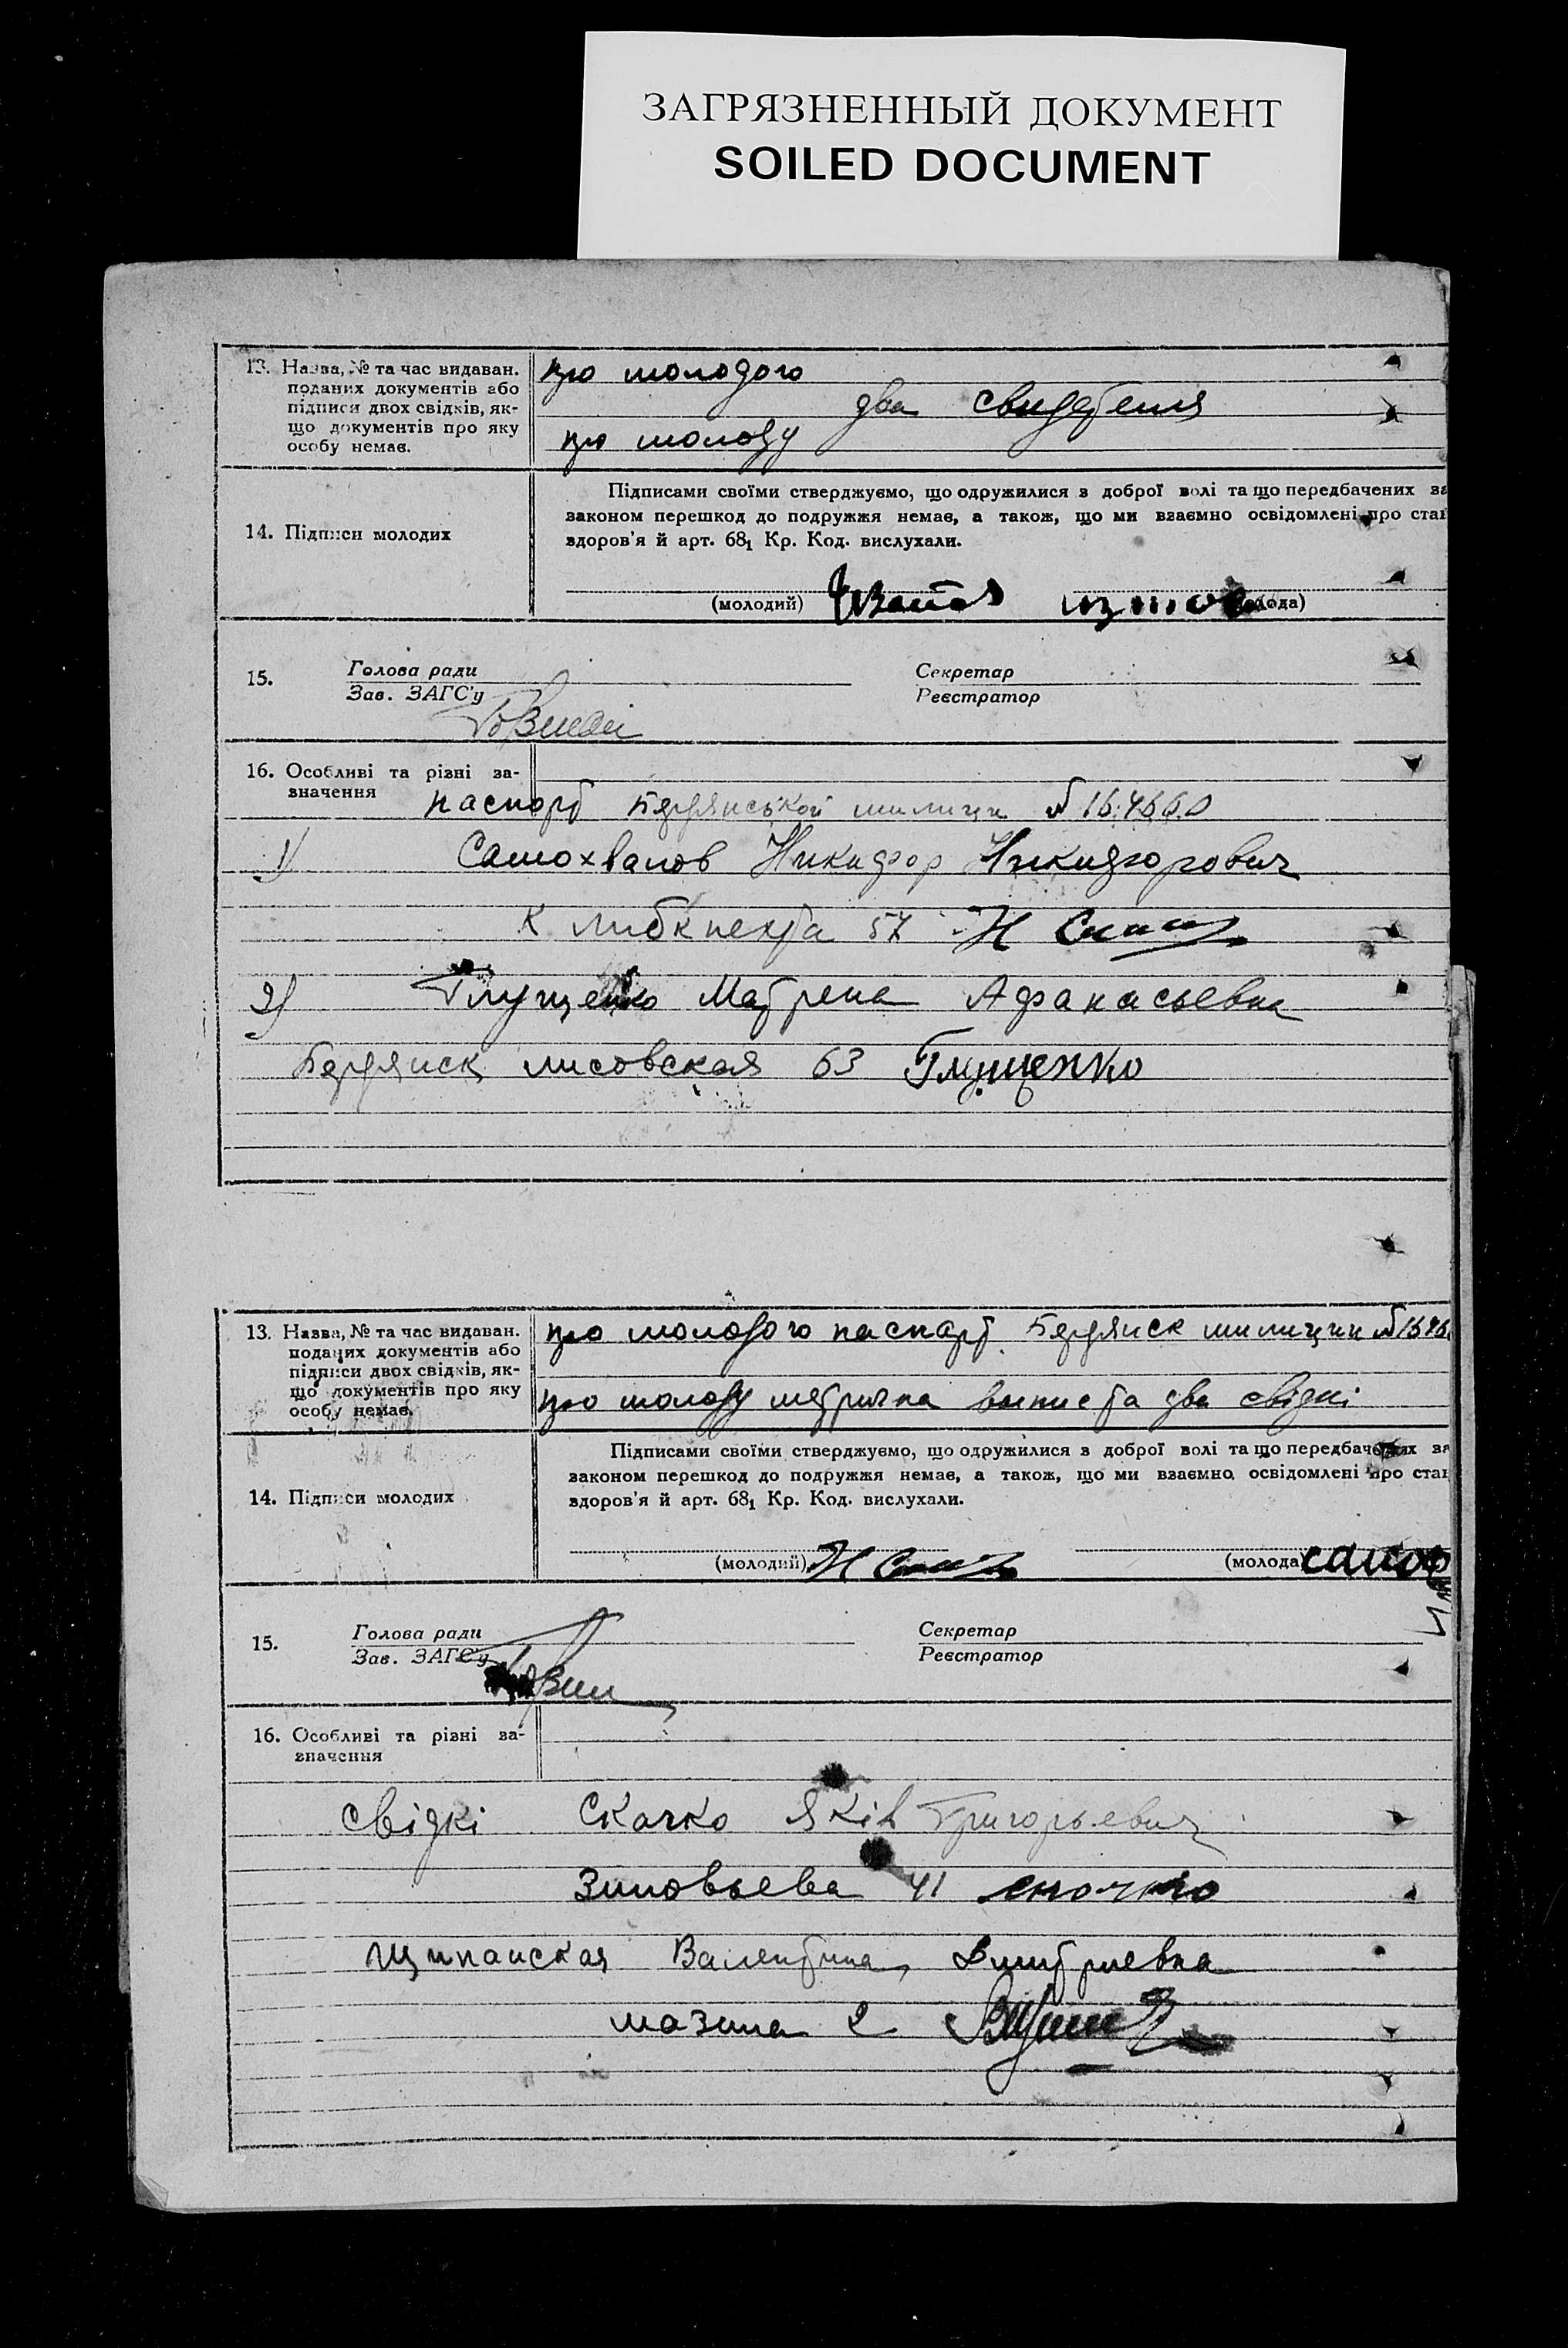 ЗАГРЯЗНЕННЫЙ ДОКУМЕНТ
SOILED DOCUMENT
13. Назва, № та час видаван. поданих документів або підписи двох свідків, як-що документів про яку особу немає.
про молодого
два свидетеля
про молоду
14. Підписи молодих
Підписами своїми стверджуємо, що одружилися з доброї волі та що передбачених за
законом перешкод до подружжя немає, а також, що ми взаємно освідомлені про стан
здоров'я й арт. 68₁ Кр. Код. вислухали.
(молодий) (молода)
15. Голова ради Секретар
Зав. ЗАГС'у Реєстратор
16. Особливі та різні за-
значення
паспорт Бердянської милиции № 164660
1) Самохвалов Никифор Никифорович
К Либкнехта 57
2) Глущенко Матрена Афанасьевна
Бердянск лисовская 63 Глущенко
13. Назва, № та час видаван. поданих документів або підписи двох свідків, як-що документів про яку особу немає.
про молодого паспорт Бердянск милиции №
про молоду метрична выпис та два свідкі
14. Підписи молодих
Підписами своїми стверджуємо, що одружилися з доброї волі та що передбачених за
законом перешкод до подружжя немає, а також, що ми взаємно освідомлені про стан
здоров'я й арт. 68₁ Кр. Код. вислухали.
(молодий) (молода
15. Голова ради Секретар
Зав. ЗАГС'у Реєстратор
16. Особливі та різні за-
значення
свідкі Скачко Яків Григорьевич
Зиновьева 41
Валентина Дмитриевна
мазина 2